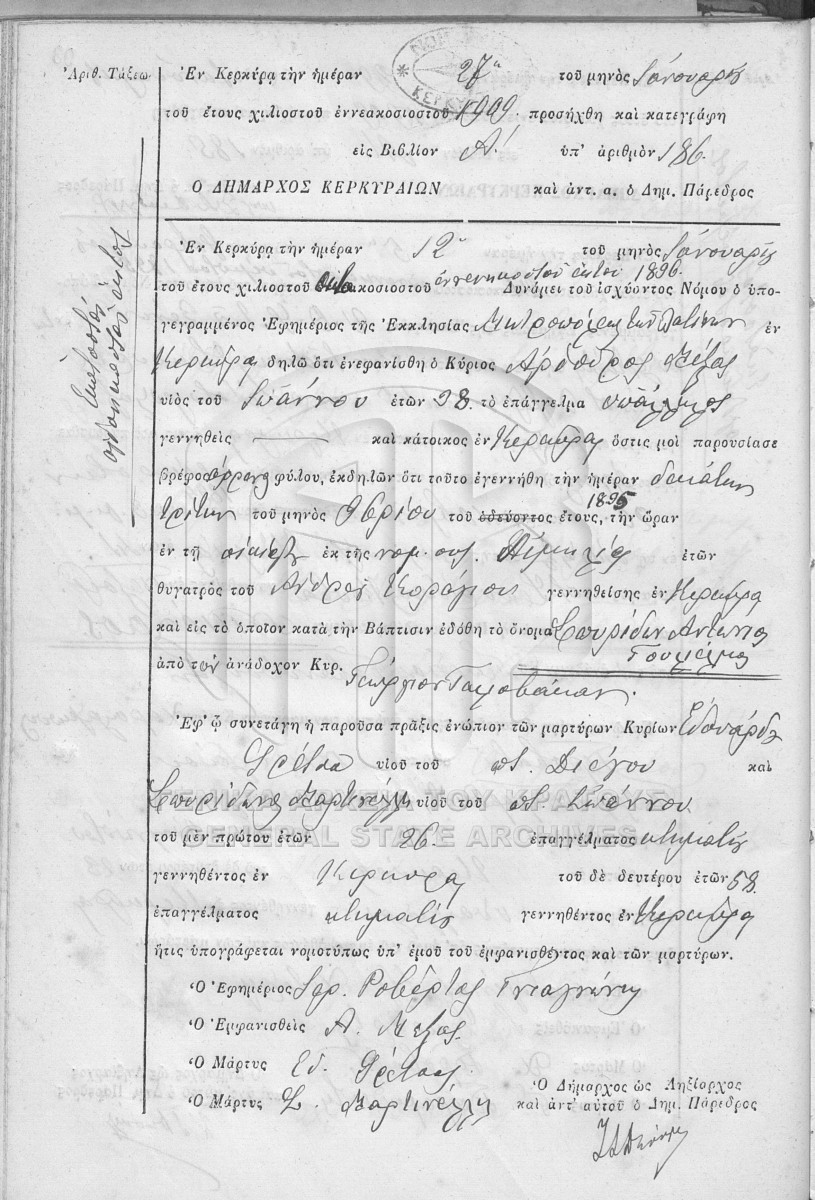 Ἀριθ. Τάξεως
Ἐν Κερκύρᾳ τὴν ἡμέραν 27η τοῦ μηνὸς Ἰανουαρίου
τοῦ ἔτους χιλιοστοῦ ἐννεακοσιοστοῦ 1909 προσήχθη καὶ κατεγράφη
εἰς Βιβλίον Α΄. ὑπ' ἀριθμὸν 186.
Ο ΔΗΜΑΡΧΟΣ ΚΕΡΚΥΡΑΙΩΝ καὶ ἀντ. α. ὁ Δημ. Πάρεδρος
ΚΕΡΚΥ
Ἑκατοστὸς
ὀγδοηκοστὸς ἕκτος
Ἐν Κερκύρᾳ τὴν ἡμέραν 12 τοῦ μηνὸς Ἰανουαρίου
ἐννενηκοστοῦ ἕκτου 1896.
τοῦ ἔτους χιλιοστοῦ ὀκτακοσιοστοῦ Δυνάμει τοῦ ἰσχύοντος Νόμου ὁ ὑπο-
γεγραμμένος Ἐφημέριος τῆς Ἐκκλησίας Μητροπόλεως τῶν Λατίνων ἐν
Κερκύρᾳ δηλῶ ὅτι ἐνεφανίσθη ὁ Κύριος
υἱὸς τοῦ Ἰωάννου ἐτῶν 28. τὸ ἐπάγγελμα ὑπάλληλος
γεννηθεὶς — καὶ κάτοικος ἐν Κερκύρᾳ ὅστις μοὶ παρουσίασε
βρέφος ἄρρεν φύλου, ἐκδηλῶν ὅτι τοῦτο ἐγεννήθη τὴν ἡμέραν δεκάτην
1895
τρίτην τοῦ μηνὸς 9βρίου τοῦ ὁδεύοντος ἔτους, τὴν ὥραν
ἐν τῇ οἰκίᾳ ἐκ τῆς νομ. συζ. Αἰμιλία ἐτῶν
θυγατρὸς τοῦ Ἀνδρέα γεννηθείσης ἐν Κερκύρᾳ
καὶ εἰς τὸ ὁποῖον κατὰ τὴν Βάπτισιν ἐδόθη τὸ ὄνομα Σπυρίδων Ἀντώνιος
Γουλιέλμος
ἀπὸ τὸν ἀνάδοχον Κυρ. Γεώργιον
Ἐφ' ᾧ συνετάγη ἡ παροῦσα πρᾶξις ἐνώπιον τῶν μαρτύρων Κυρίων Ἐδουάρδο
υἱοῦ τοῦ ποτ. Διέγου καὶ
Σπυρίδωνα Μαρτινέλλη υἱοῦ τοῦ ποτ. Ἰωάννου
τοῦ μὲν πρώτου ἐτῶν 26. ἐπαγγέλματος κτηματίας
γεννηθέντος ἐν Κερκύρᾳ τοῦ δὲ δευτέρου ἐτῶν 58.
ἐπαγγέλματος κτηματίας γεννηθέντος ἐν Κερκύρᾳ
ἥτις ὑπογράφεται νομοτύπως ὑπ' ἐμοῦ τοῦ ἐμφανισθέντος καὶ τῶν μαρτύρων.
Ὁ Ἐφημέριος Ροβέρτος
Ὁ Ἐμφανισθεὶς Α. Μέζας
Ὁ Μάρτυς Ἐδ.
Ὁ Μάρτυς Σ. Μαρτινέλλης
Ὁ Δήμαρχος ὡς Ληξίαρχος
καὶ ἀντ' αὐτοῦ ὁ Δημ. Πάρεδρος
ΓΕΝΙΚΑ ΑΡΧΕΙΑ ΤΟΥ ΚΡΑΤΟΥΣ
GENERAL STATE ARCHIVES